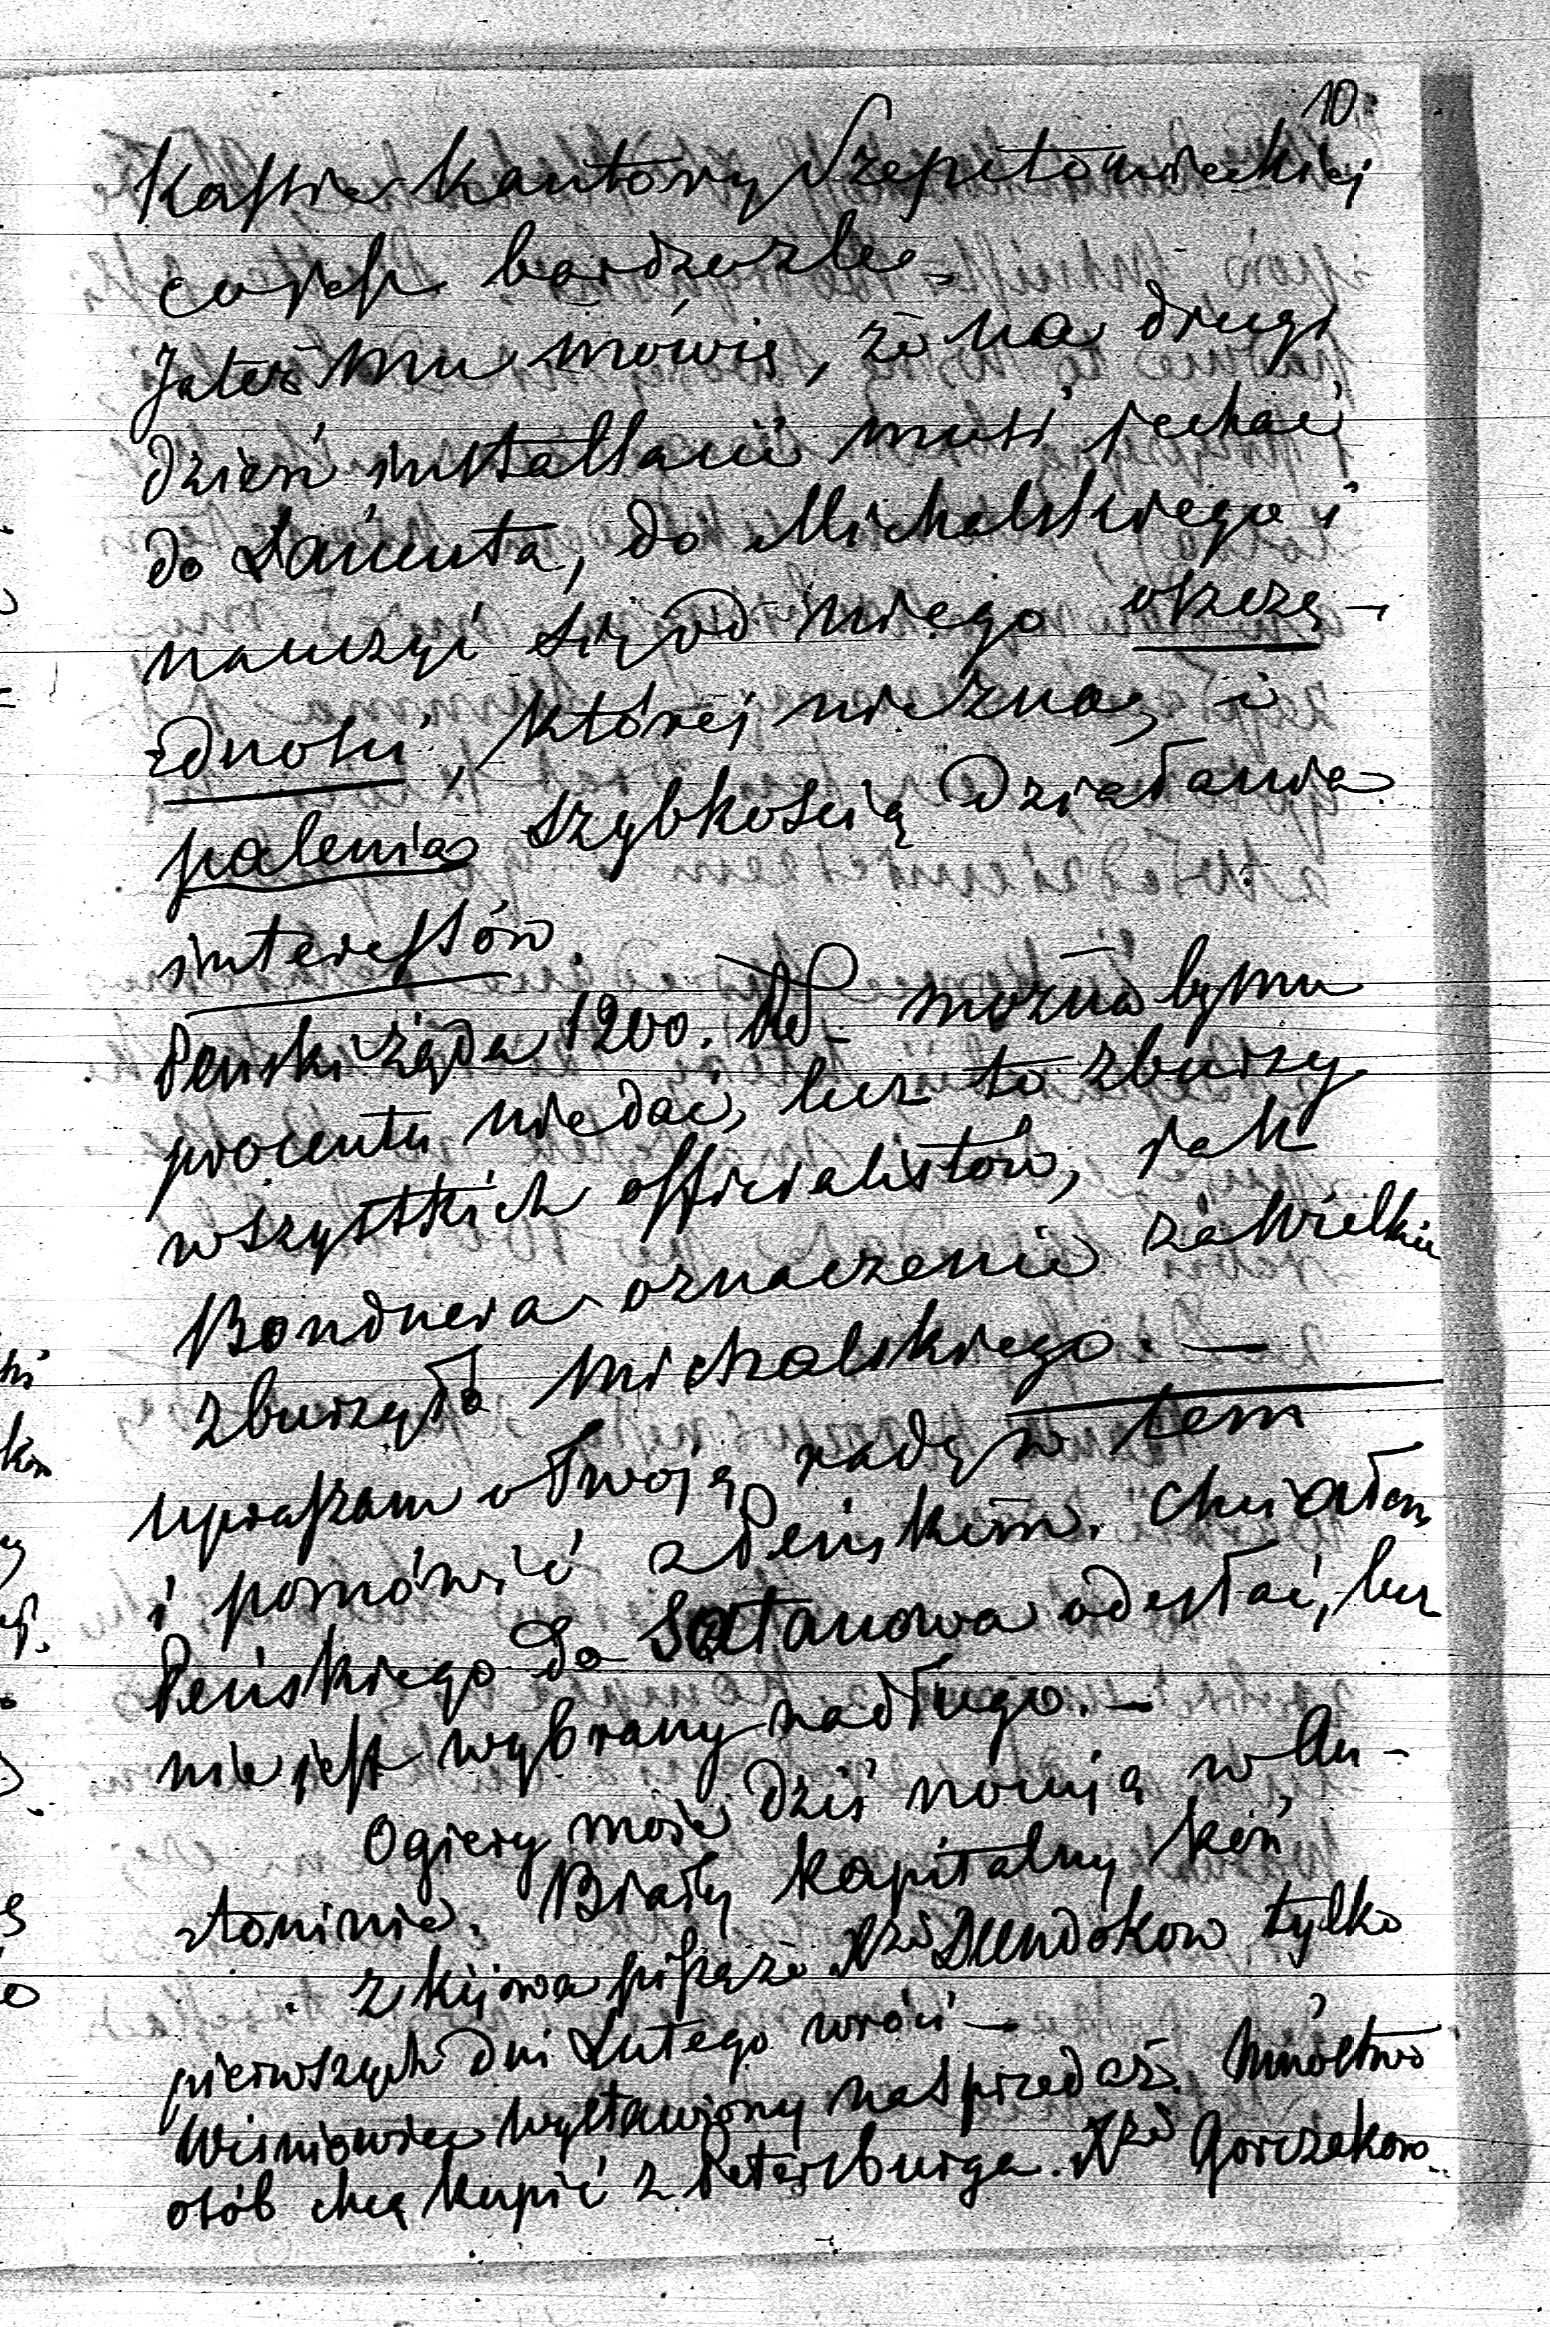 10.
Kassie Kantory Szepetowieckiej
co jest bardzo złe.
Ja też mu mówię, że na drugi
dzień installacii musi jechać
do Łańcuta, do Michalskiego i
nauczyć się od niego oszczę-
dności, której nie zna, i
palenia szybkością działania
interessów.
Peński żąda 1200. Rb. możnaby mu
procentu niedać, lecz to zburzy
wszystkich officialistów, jak
Bondnera oznaczenie zawielkie
zburzyło Michalskiego. —
Upraszam o Twoją radę w tem
i pomówić z Peńskim. Chciałem
Peńskiego do Satanowa odesłać, lecz
nie jest wybrany nadługo. —
Ogiery moje dziś nocują w An-
toninie. Biały kapitalny koń
z Kijowa piszą że Xże Dundokow tylko
pierwszych dni Lutego wróci —
Wiśniowiec wystawiony na sprzedaż. Mnóstwo
osób chcą kupić z Petersburga. Xże Gorczakow